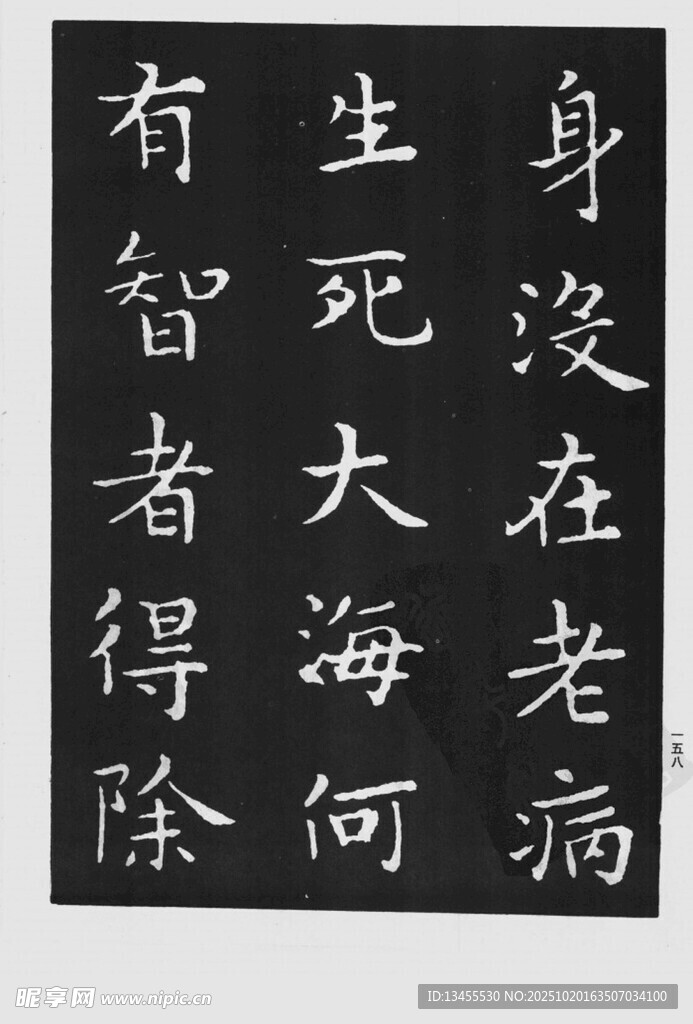 身没在老病
生死大海何
有智者得除
一五八
昵享网 www.nipic.cn
ID:13455530 NO:20251020163507034100